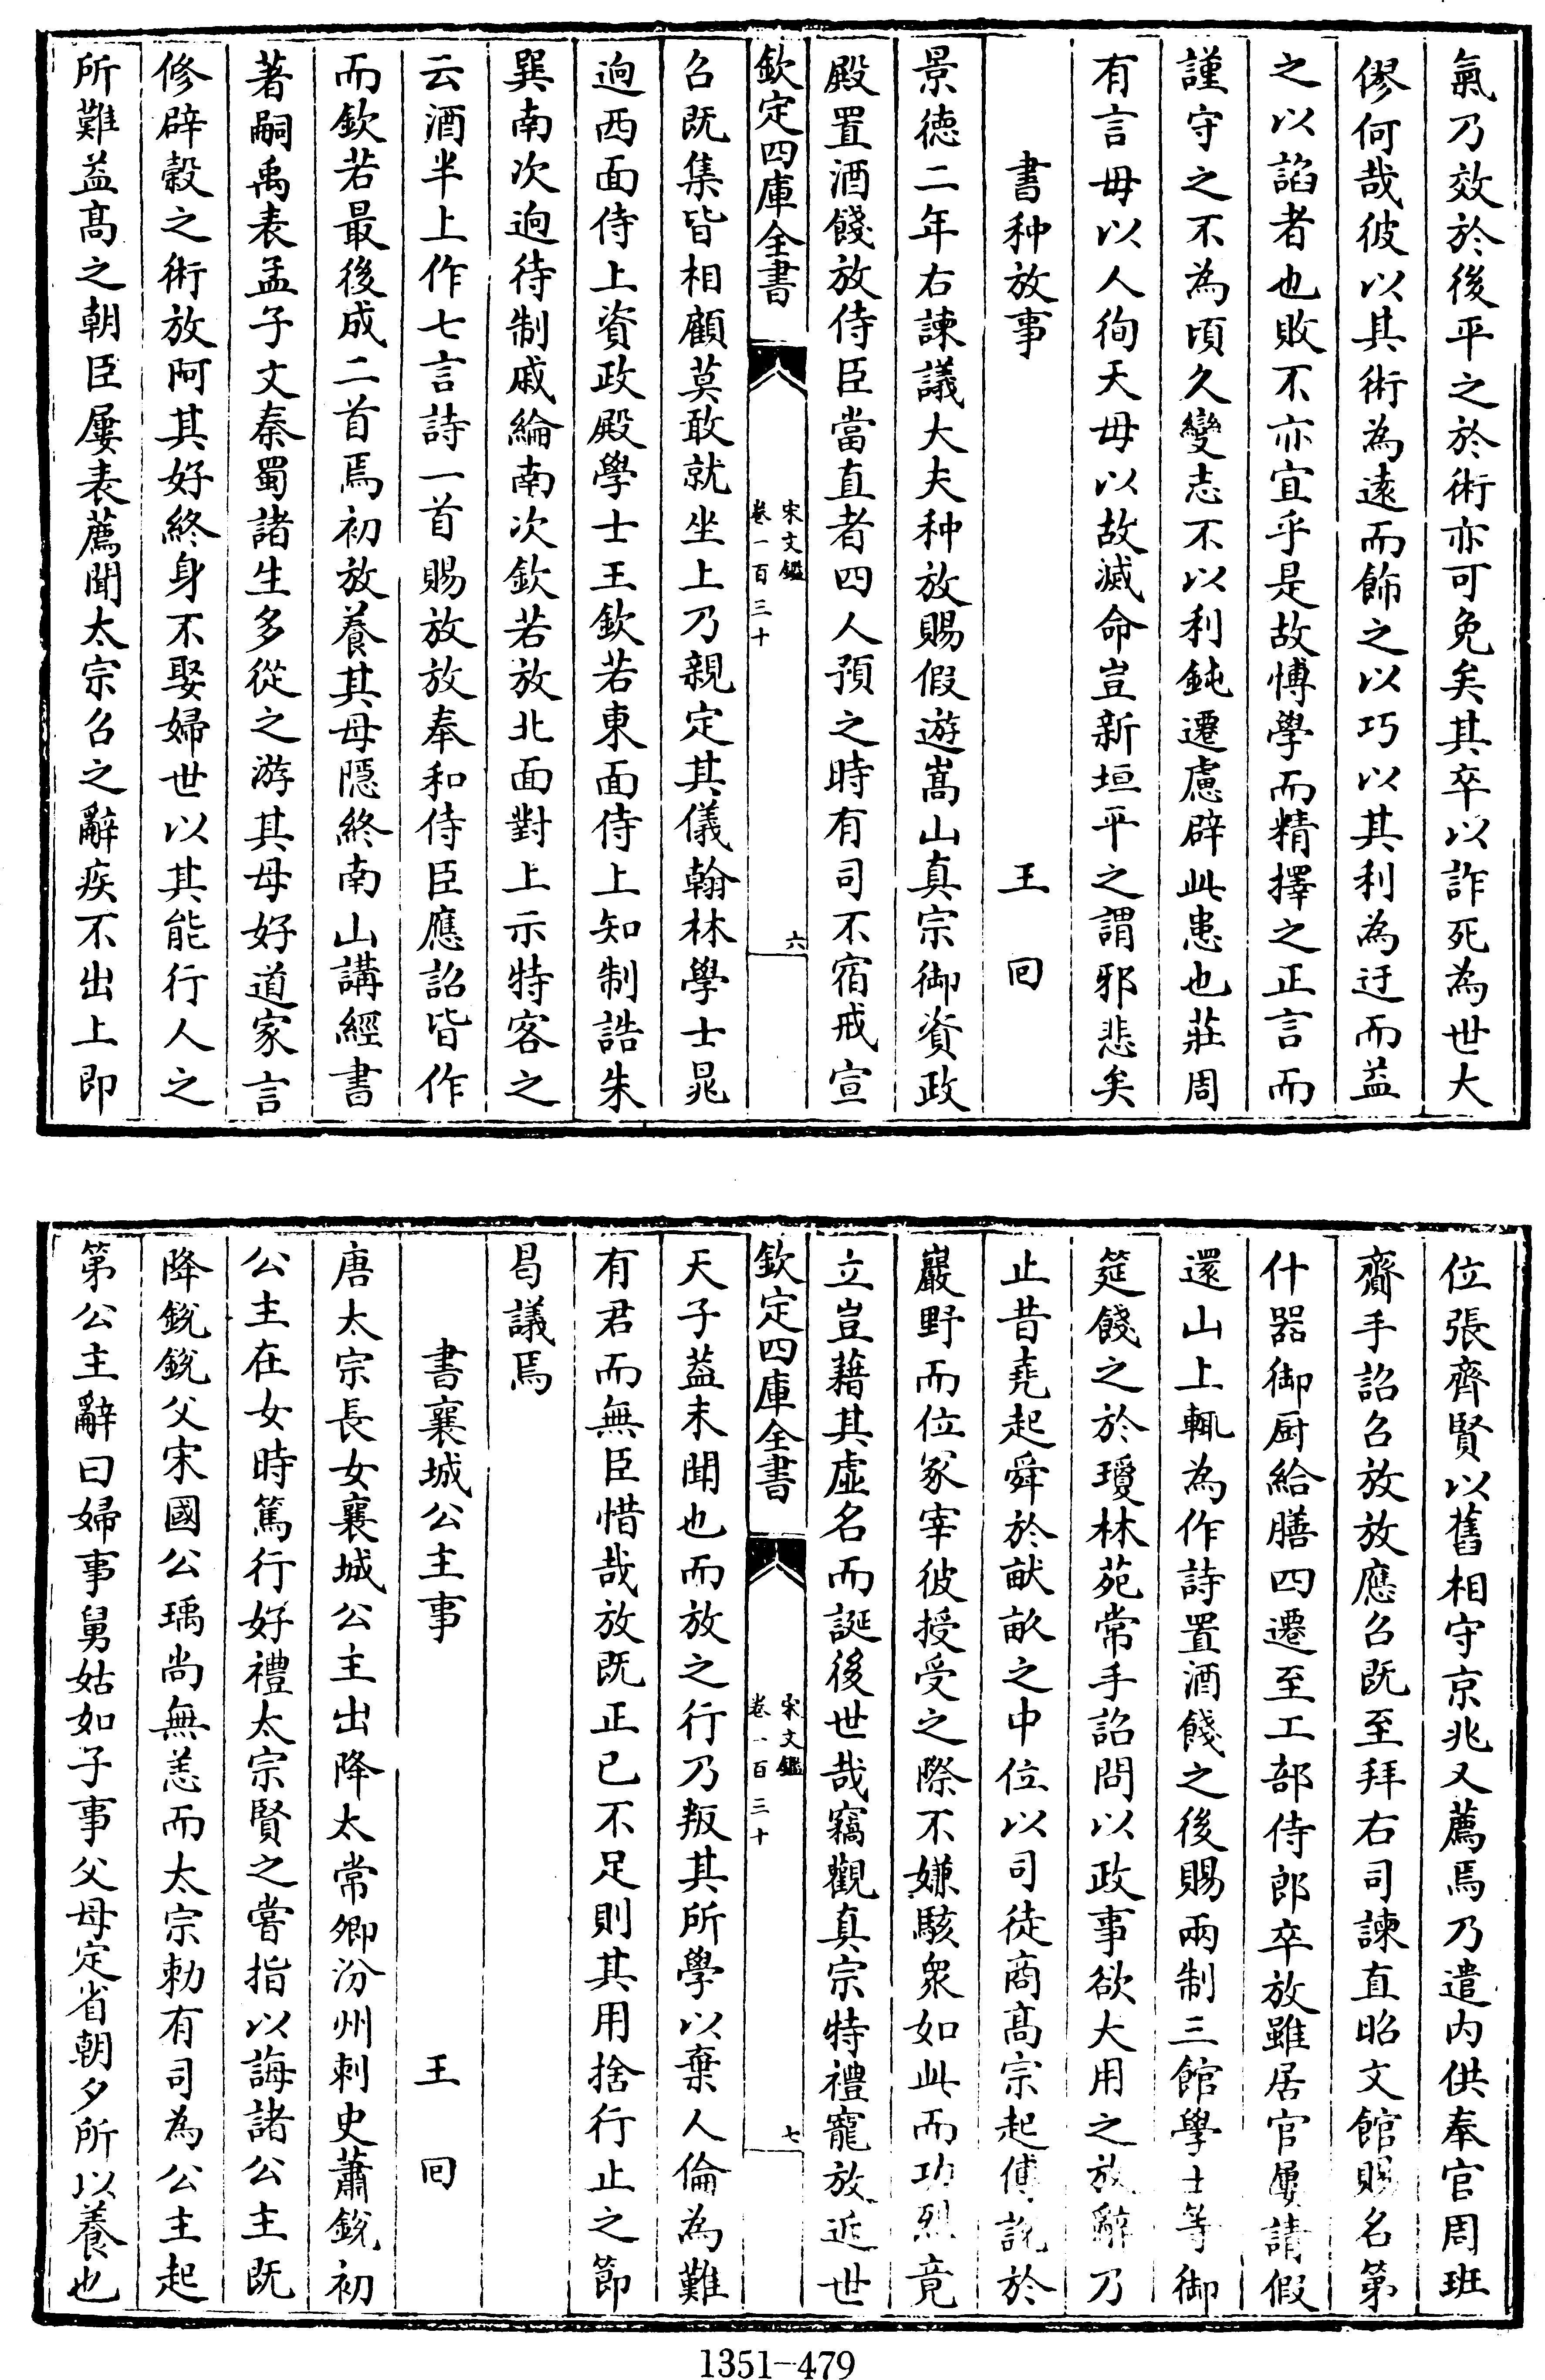 氣乃效於後平之於術亦可免矣其卒以詐死為世大
僇何哉彼以其術為遠而飾之以巧以其利為迂而益
之以諂者也敗不亦宜乎是故愽學而精擇之正言而
謹守之不為頃久變志不以利鈍遷慮辟此患也莊周
有言毋以人徇天毋以故滅命豈新垣平之謂邪悲矣
書种放事　王　囘
景徳二年右諫議大夫种放賜假遊嵩山真宗御資政
殿置酒餞放侍臣當直者四人預之時有司不宿戒宣
欽定四庫全書　宋文鑑　卷一百三十　六
召既集皆相顧莫敢就坐上乃親定其儀翰林學士晁
逈西面侍上資政殿學士王欽若東面侍上知制誥朱
巽南次逈待制戚綸南次欽若放北面對上示特客之
云酒半上作七言詩一首賜放放奉和侍臣應詔皆作
而欽若最後成二首焉初放養其母隱終南山講經書
著嗣禹表孟子文秦蜀諸生多從之游其母好道家言
修辟穀之術放阿其好終身不娶婦世以其能行人之
所難益髙之朝臣屢表薦聞太宗召之辭疾不出上即
位張齊賢以舊相守京兆又薦焉乃遣内供奉官周班
齎手詔召放放應召既至拜右司諫直昭文館賜名第
什器御厨給膳四遷至工部侍郎卒放雖居官屢請假
還山上輒為作詩置酒餞之後賜兩制三館學士等御
筵餞之於瓊林苑常手詔問以政事欲大用之放辭乃
止昔堯起舜於畎畝之中位以司徒商髙宗起傅說於
巖野而位冢宰彼授受之際不嫌駭衆如此而功烈竟
立豈藉其虚名而誕後世哉竊觀真宗特禮寵放近世
欽定四庫全書　宋文鑑　卷一百三十　七
天子葢未聞也而放之行乃叛其所學以棄人倫為難
有君而無臣惜哉放既正已不足則其用捨行止之節
曷議焉
書襄城公主事　王　囘
唐太宗長女襄城公主出降太常卿汾州刺史蕭鋭初
公主在女時篤行好禮太宗賢之嘗指以誨諸公主既
降鋭鋭父宋國公瑀尚無恙而太宗勅有司為公主起
第公主辭曰婦事舅姑如子事父母定省朝夕所以養也
1351-479